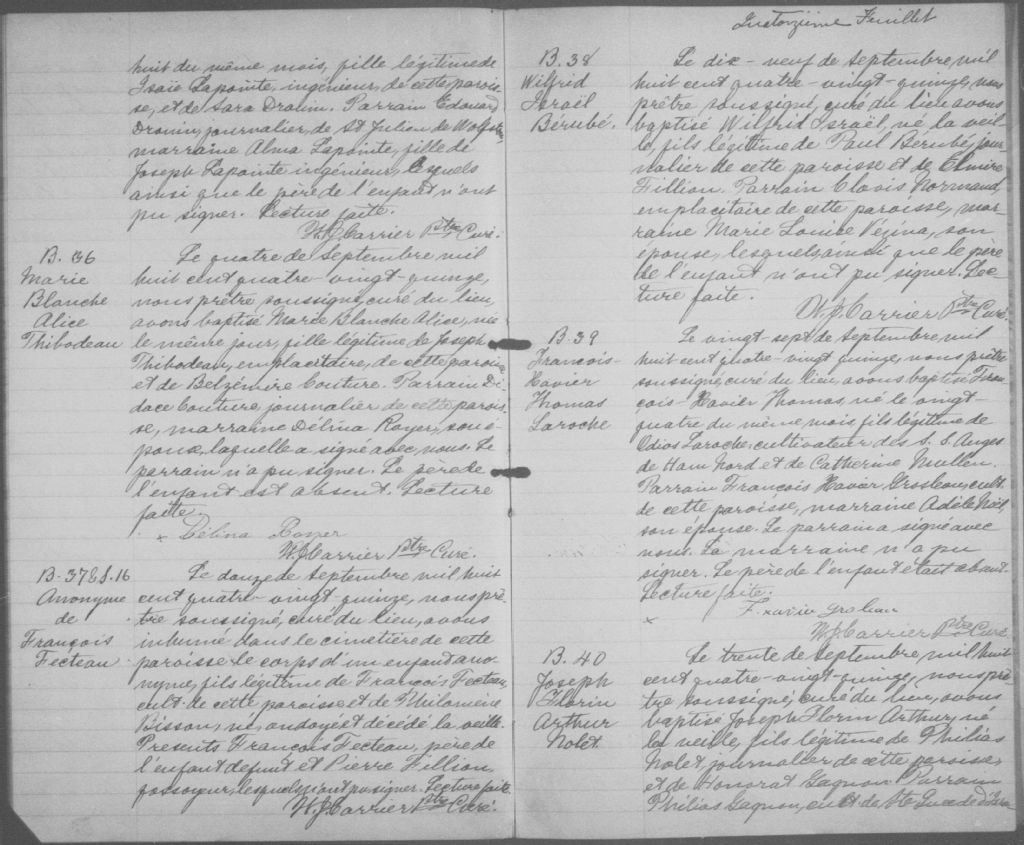 huit du même mois, fille légitime de
Isaïe Lapointe, ingénieur, de cette parois-
se, et de Sara Drouin. Parrain Edouard
Drouin, journalier, de St Julien de Wolfstn,
marraine Alma Lapointe, fille de
Joseph Lapointe ingénieur, lesquels
ainsi que le père de l'enfant n'ont
pu signer. Lecture faite.
W. J. Carrier Ptre Curé.
B. 36
Marie
Blanche
Alice
Thibodeau
Le quatre de Septembre mil
huit cent quatre-vingt-quinze,
nous prêtre soussigné, curé du lieu,
avons baptisé Marie Blanche Alice, née
le même jour, fille légitime de Joseph
Thibodeau, emplacitaire, de cette paroisse
et de Belzémire Couture. Parrain Di-
dace Couture journalier de cette parois-
se, marraine Délina Royer, son é-
pouse, laquelle a signé avec nous. Le
parrain n'a pu signer. Le père de
l'enfant est absent. Lecture
faite.
x Délina Royer
W. J. Carrier Ptre Curé.
B-37 & S.16
Anonyme
de
François
Fecteau.
Le douze de Septembre mil huit
cent quatre-vingt-quinze, nous prê-
tre soussigné, curé du lieu, avons
inhumé dans le cimetière de cette
paroisse le corps d'un enfant ano-
nyme, fils légitime de François Fecteau,
cult. de cette paroisse et de Philomène
Bisson, né, ondoyé et décédé la veille.
Présents François Fecteau, père de
l'enfant défunt et Pierre Fillion,
fossoyeur, lesquels n'ont pu signer. Lecture faite
W. J. Carrier Ptre Curé.
Quatorzième Feuillet
B. 38
Wilfrid
Israël
Bérubé.
Le dix-neuf de Septembre, mil
huit cent quatre-vingt-quinze, nous
prêtre soussigné, curé du lieu avons
baptisé Wilfrid Israël, né la veil-
le, fils légitime de Paul Berubé, jour-
nalier de cette paroisse et de Elmire
Fillion. Parrain Clovis Normand,
emplacitaire de cette paroisse, mar-
raine Marie Louise Vezina, son
épouse, lesquels ainsi que le père
de l'enfant n'ont pu signer. Lec-
ture faite.
W. J. Carrier Ptre Curé.
B. 39
François-
Xavier
Thomas
Laroche
Le vingt-sept de Septembre, mil
huit cent quatre-vingt quinze, nous prêtre
soussigné, curé du lieu, avons baptisé Fran-
çois-Xavier Thomas, né le vingt-
quatre du même mois, fils légitime de
Laroche, cultivateur des S. S. Anges
de Ham Nord et de Catherine Mullen.
Parrain François Xavier Grosleau, cult.
de cette paroisse, marraine Adèle Noël,
son épouse. Le parrain a signé avec
nous. La marraine n'a pu
signer. Le père de l'enfant était absent.
Lecture faite.
x F. xavier
W. J. Carrier Ptre Curé
B. 40
Joseph
Florin
Arthur
Nolet.
Le trente de Septembre mil huit
cent quatre-vingt-quinze, nous prê-
tre soussigné, curé du lieu, avons
baptisé Joseph Florin Arthur, né
la veille, fils légitime de Philias
Nolet, journalier de cette paroisse
et de Honorat Gagnon. Parrain
Philias Gagnon, cult de Ste